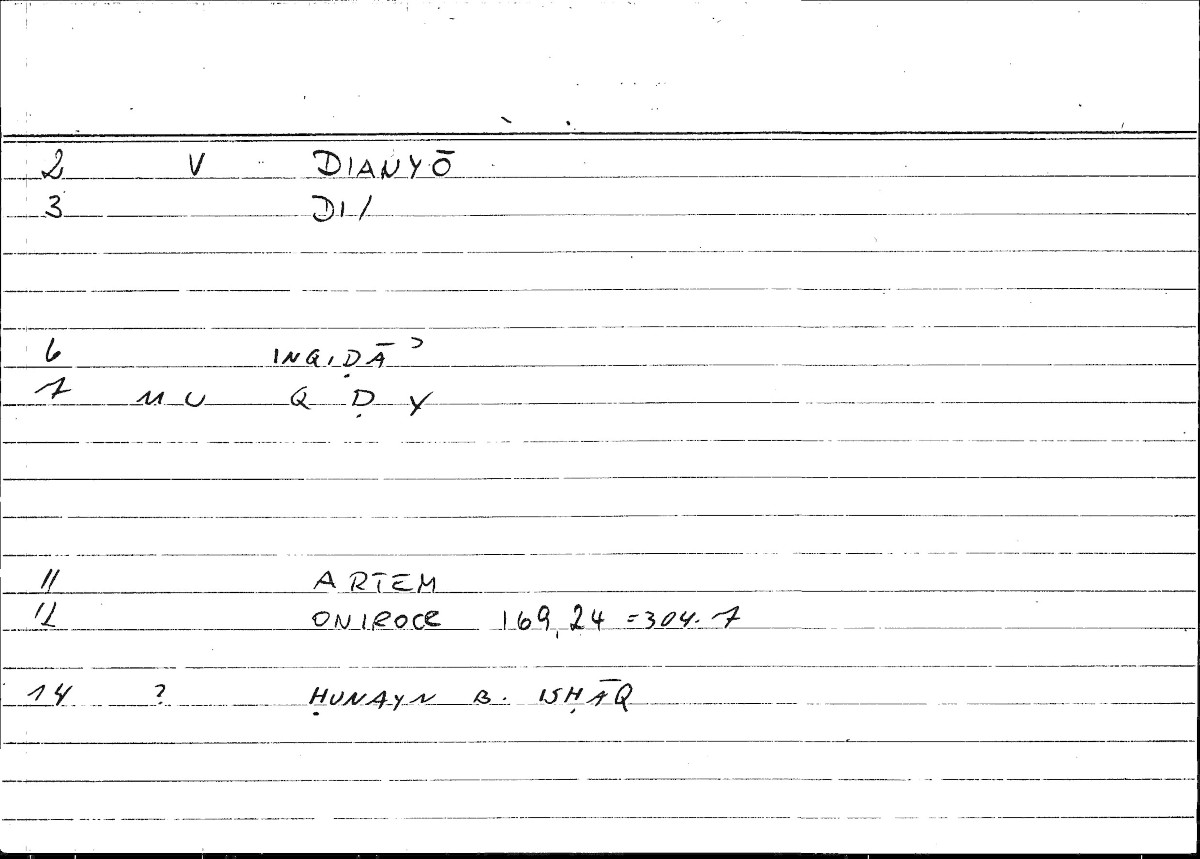 2 V DIANYŌ
3 DI/
6 INQIḌĀʾ
7 MU Q Ḍ Y
11 ARTEM
12 ONIROCR 169,24 =304.7
14 ? ḤUNAYN B. ISḤĀQ